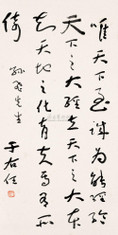 唯天下至誠為能經綸
天下之大經立天下之大本
知天地之化育夫焉有所
倚
先生
于右任